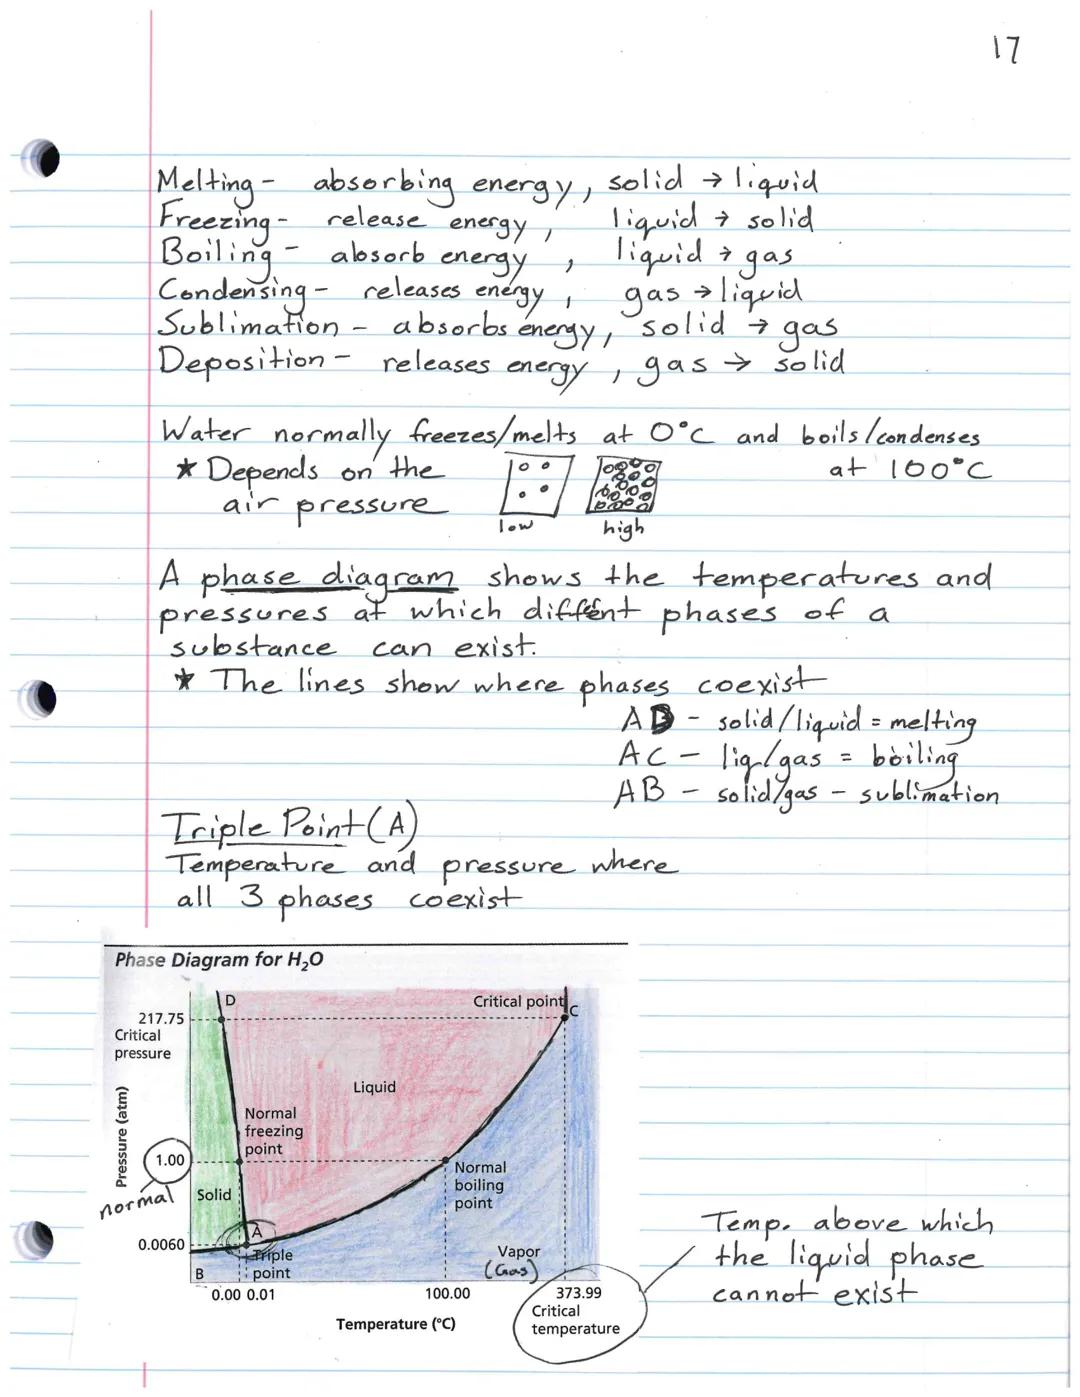 17
Melting - absorbing energy, solid → liquid
Freezing - release energy, liquid → solid
Boiling - absorb energy, liquid → gas
Condensing - releases energy, gas → liquid
Sublimation - absorbs energy, solid → gas
Deposition - releases energy, gas → solid
Water normally freezes/melts at 0°C and boils/condenses
at 100°C
* Depends on the
air pressure
low
high
A phase diagram shows the temperatures and
pressures at which different phases of a
substance can exist.
* The lines show where phases coexist
AD - solid/liquid = melting
AC - liq/gas = boiling
AB - solid/gas - sublimation
Triple Point (A)
Temperature and pressure where
all 3 phases coexist
Phase Diagram for H₂O
D
Critical point
C
217.75
Critical
pressure
Liquid
Pressure (atm)
Normal
freezing
point
1.00
normal
Solid
Normal
boiling
point
A
0.0060
Triple
point
B
Vapor
(Gas)
0.00 0.01
100.00
373.99
Critical
temperature
Temperature (°C)
Temp. above which
the liquid phase
cannot exist